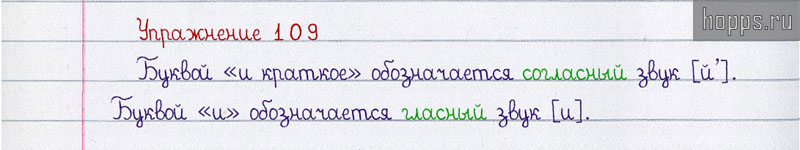 hopps.ru
Упражнение 109
Буквой «и краткое» обозначается согласный звук [й’].
Буквой «и» обозначается гласный звук [и].